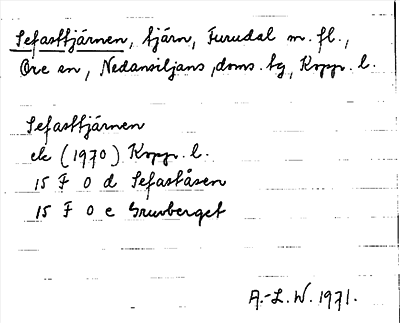 Sefasttjärnen, tjärn, Furudal m. fl.,
Ore sn, Nedansiljans doms. tg, Kopp. l.
Sefasttjärnen
ek (1970) Kopp. l.
15 F 0 d Sefaståsen
15 F 0 e Gruvberget
A.-L. W. 1971.